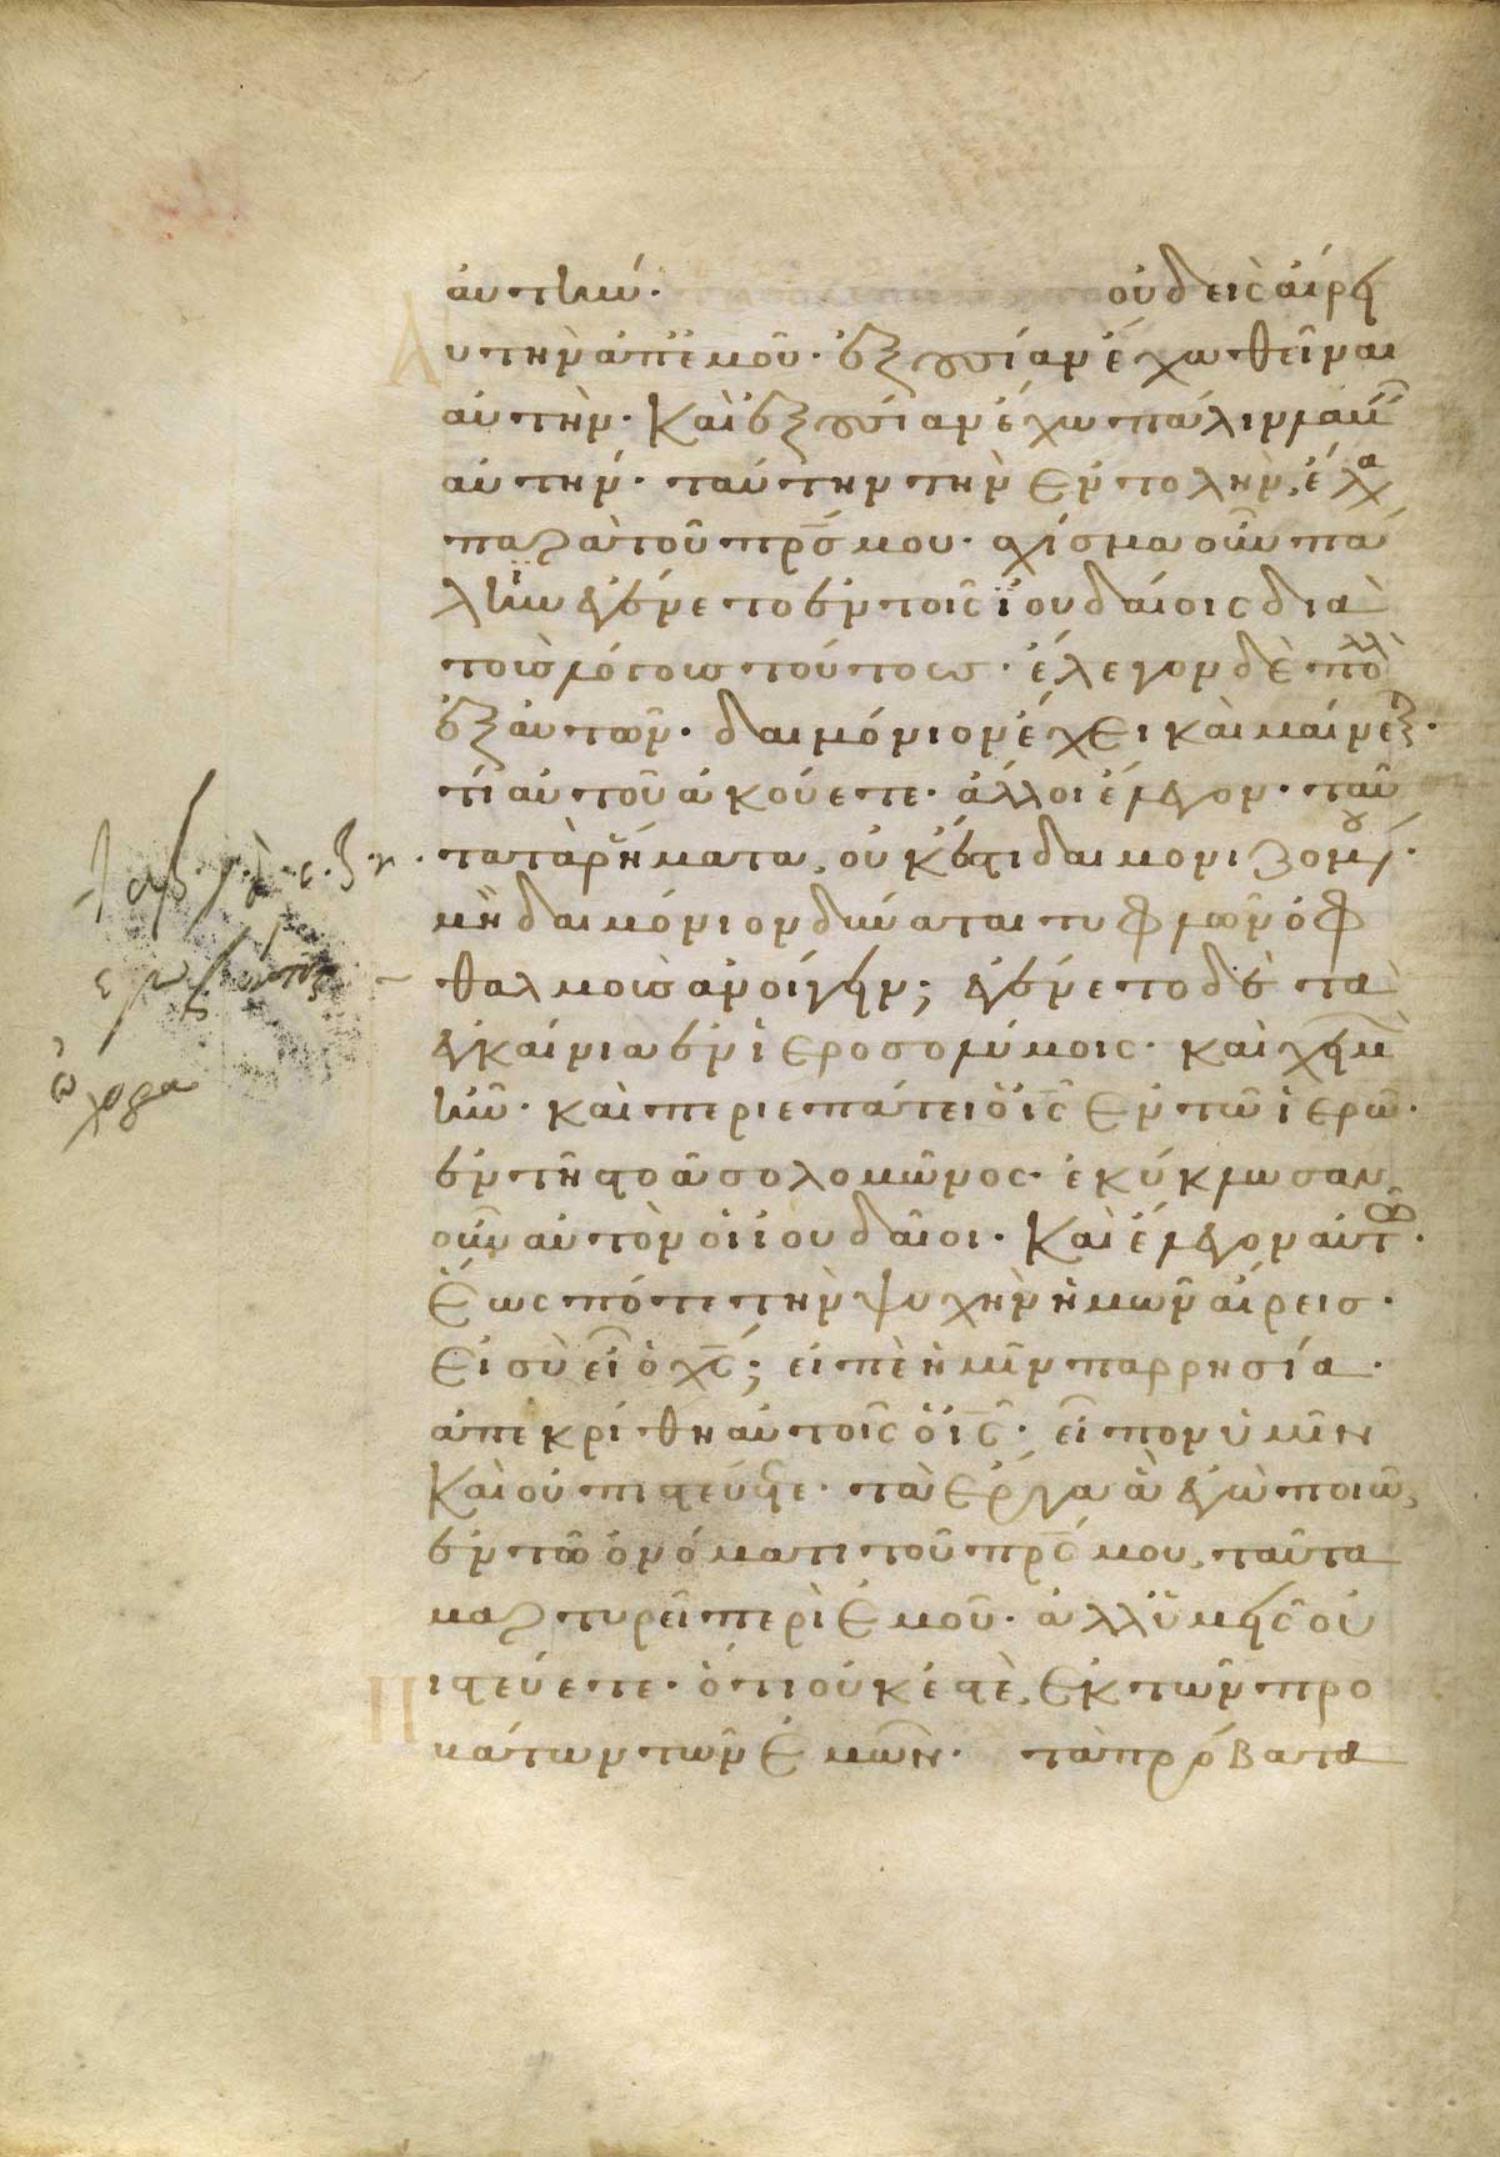 αὐτήν. οὐδεὶς αἴρει
Αὐτὴν ἀπ' ἐμοῦ. ἐξουσίαν ἔχω θεῖναι
αὐτήν. Καὶ ἐξουσίαν ἔχω πάλιν λαβεῖν
αὐτήν. ταύτην τὴν ἐντολὴν, ἔλαβον
παρὰ τοῦ πρ̅ς μου. σχίσμα οὖν πά
λιν ἐγένετο ἐν τοῖς ἰουδαίοις διὰ
τοὺς λόγους τούτους. ἔλεγον δὲ πολλοὶ
ἐξ αὐτῶν. δαιμόνιον ἔχει καὶ μαίνεται.
τί αὐτοῦ ἀκούετε. ἄλλοι ἔλεγον. ταῦ
τα τὰ ῥήματα, οὐκ ἔστι δαιμονιζομένου.
μὴ δαιμόνιον δύναται τυφλῶν ὀφ
θαλμοὺς ἀνοίγειν; ἐγένετο δὲ τὰ
ἐγκαίνια ἐν ἱεροσολύμοις. καὶ χειμὼν
ἦν. καὶ περιεπάτει ὁ ι̅ς ἐν τῶ ἱερῶ.
ἐν τῆ στοᾶ σολομῶνος. ἐκύκλωσαν
οὖν αὐτὸν οἱ ἰουδαῖοι. Καὶ ἔλεγον αὐτῶ.
Ἕως πότε τὴν ψυχὴν ἡμῶν αἴρεις.
Εἰ σὺ εἶ ὁ χ̅ς; εἰπὲ ἡμῖν παρρησία.
ἀπεκρίθη αὐτοῖς ὁ ι̅ς. εἶπον ὑμῖν
Καὶ οὐ πιστεύετε. τὰ ἔργα ἃ ἐγὼ ποιῶ,
ἐν τῶ ὀνόματι τοῦ πρ̅ς μου, ταῦτα
μαρτυρεῖ περὶ ἐμοῦ. ἀλλ' ὑμεῖς οὐ
Πιστεύετε. ὅτι οὐκ ἐστὲ, ἐκ τῶν προ
βάτων τῶν ἐμῶν. τὰ πρόβατα